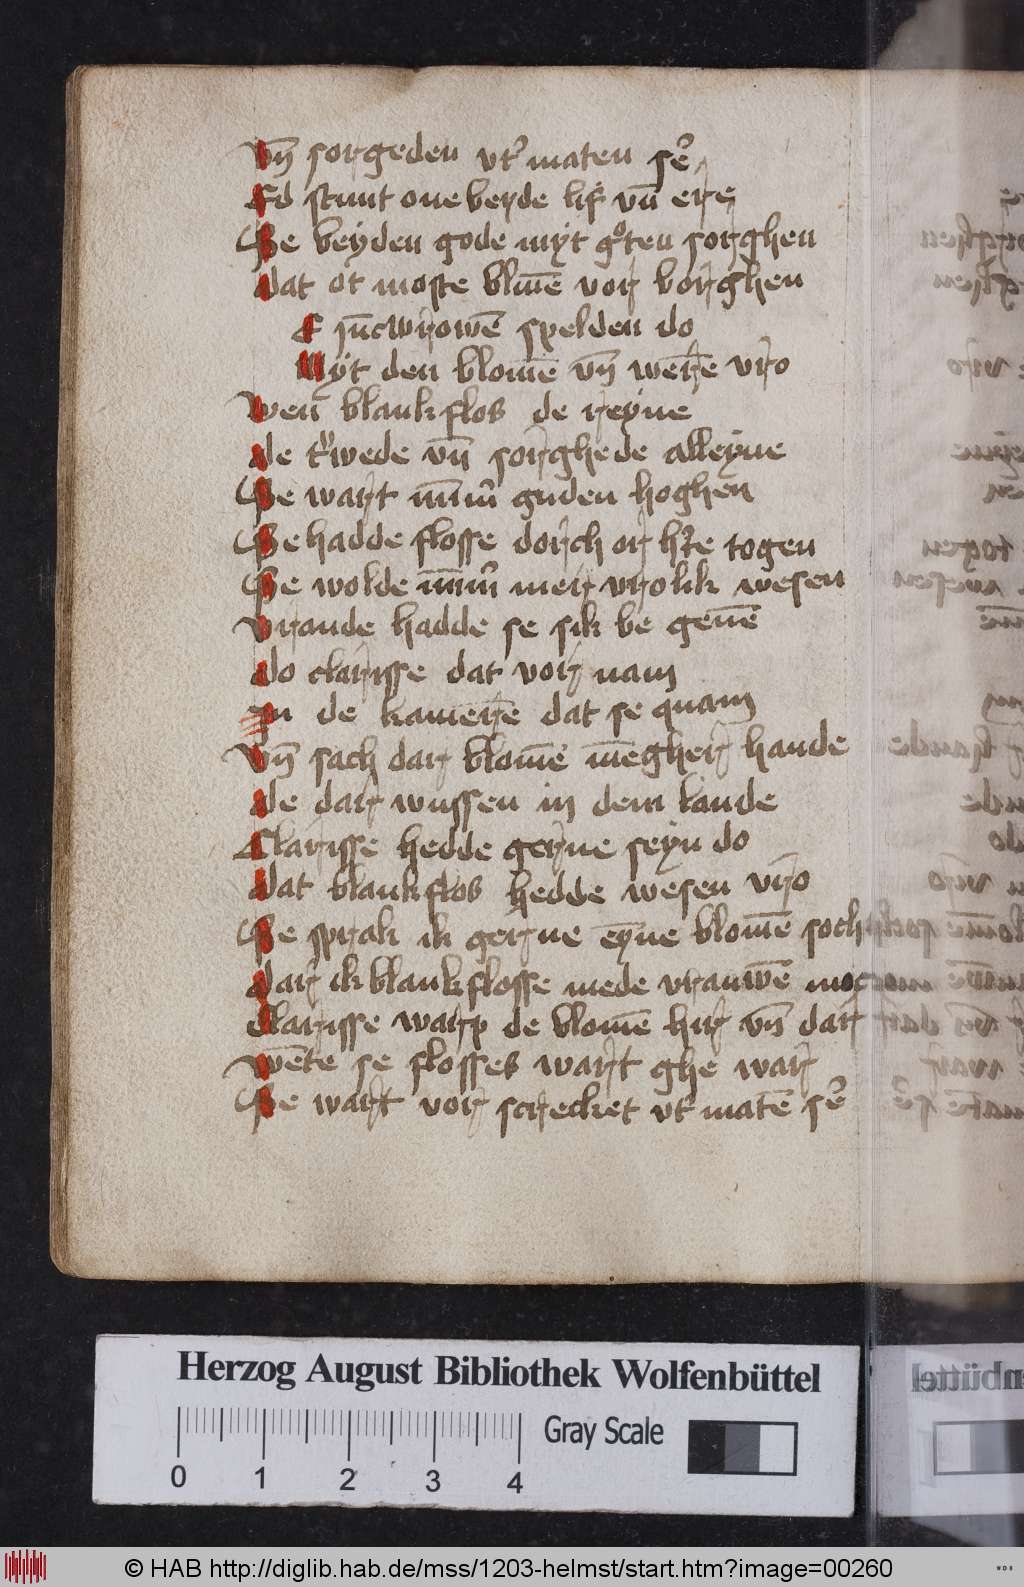 Vn̄ sorgeden vt' maten se'
Ed stunt one beyde lif vn̄ ere
Se beyden gode myt gͦten sorghen
dat ot moste bliuē vor borghen
E iūcwrowē spelden do
Myt den blomē vn̄ werē vro
Wen blankflos de reyne
de t'wede vn̄ sorghede alleyne
Se wart nūm̄ guden hoghen
Se hadde flosse dorch or h'te togen
Se wolde nūm̄ mer vrolik wesen
vrande hadde se sik be geuē
do clarisse dat vor nam
In de kamerē dat se quam
Vn̄ sach dar blomē mēgher hande
de dar wussen in dem lande
Clarisse hedde gerne seyn do
dat blankflos hedde wesen vro
Se sprak ik gerne eyne blomē soch
dar ik blankflosse mede vrauwē mo
Clarisse warp de blomē hir vn̄ dar
wēte se flosses wart ghe war
Se wart vor screcket vt' matē se'
Herzog August Bibliothek Wolfenbüttel
Gray Scale
0 1 2 3 4
© HAB http://diglib.hab.de/mss/1203-helmst/start.htm?image=00260